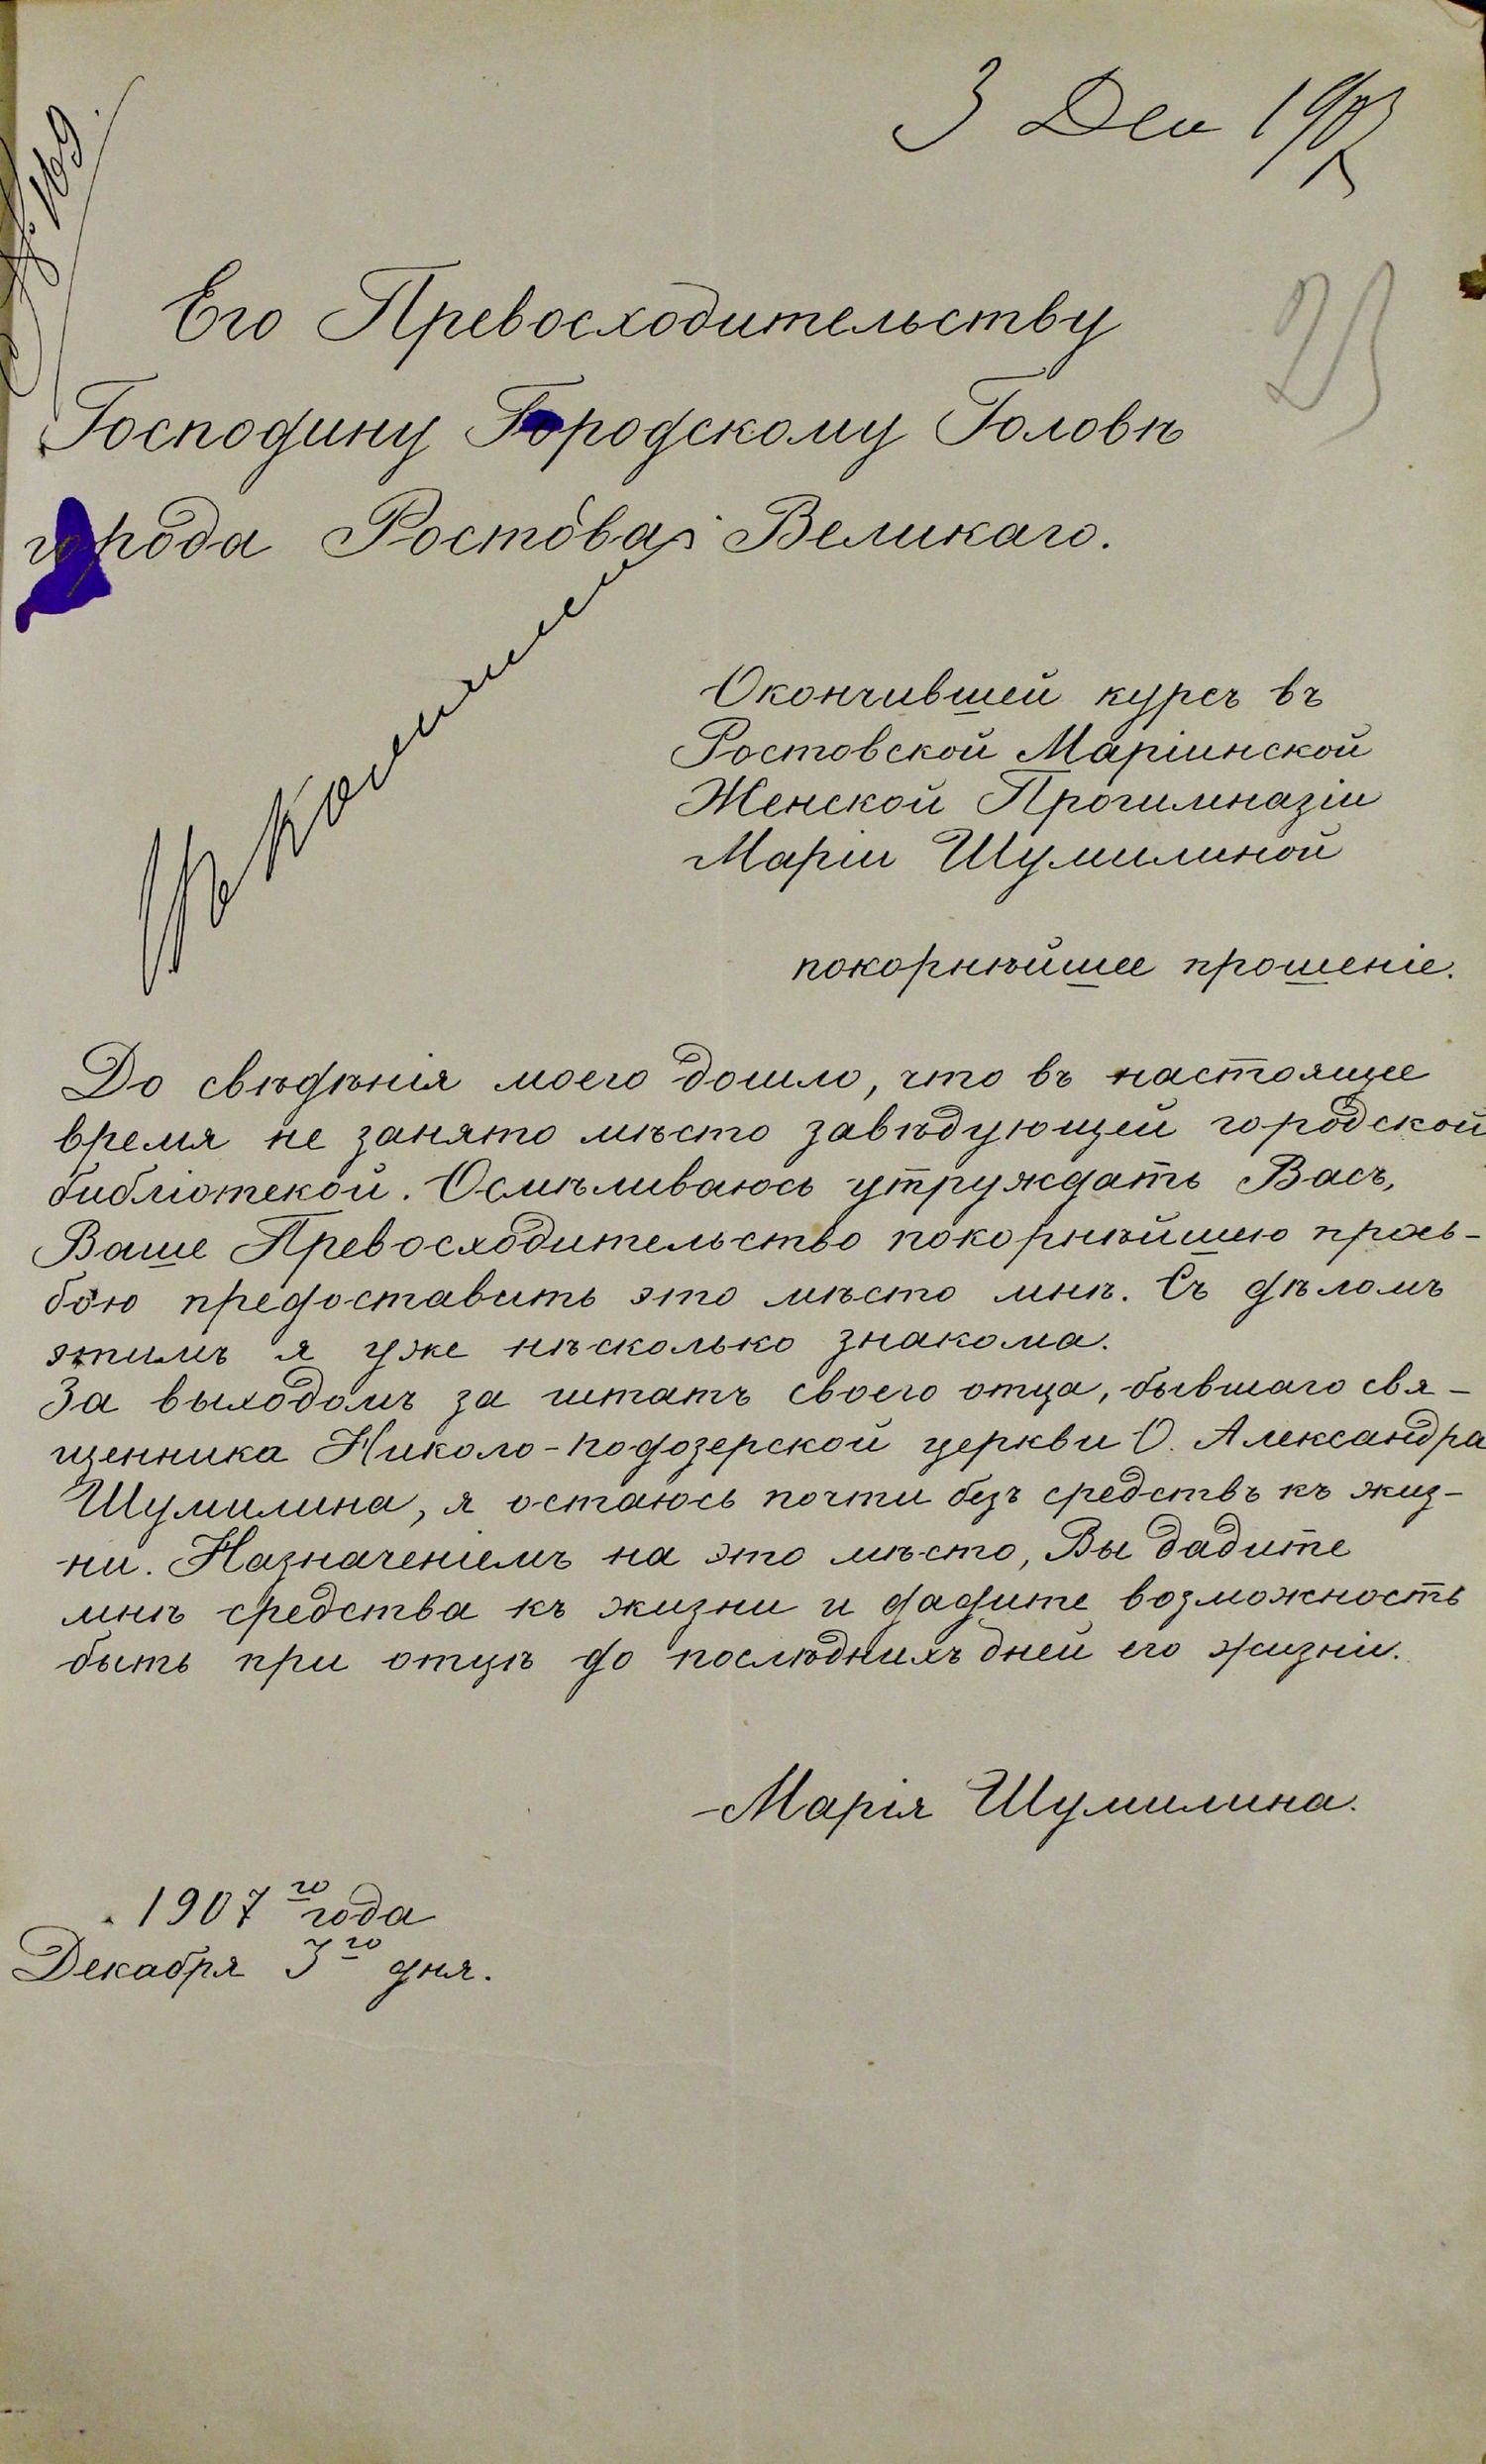 3 Дек 1907
№ 169.
23
Его Превосходительству
Господину Городскому Головѣ
города Ростова Великаго.
Окончившей курсъ въ
Ростовской Маріинской
Женской Прогимназіи
Маріи Шумилиной
покорнѣйшее прошеніе.
До свѣдѣнія моего дошло, что въ настоящее
время не занято мѣсто завѣдующей городской
библіотекой. Осмѣливаюсь утруждать Васъ,
Ваше Превосходительство покорнѣйшею прось-
бою предоставить это мѣсто мнѣ. Съ дѣломъ
этимъ я уже нѣсколько знакома.
За выходомъ за штатъ своего отца, бывшаго свя-
щенника Николо-подозерской церкви О. Александра
Шумилина, я остаюсь почти безъ средствъ къ жиз-
ни. Назначеніемъ на это мѣсто, Вы дадите
мнѣ средства къ жизни и дадите возможность
быть при отцѣ до послѣднихъ дней его жизни.
Марія Шумилина.
1907го года
Декабря 3го дня.